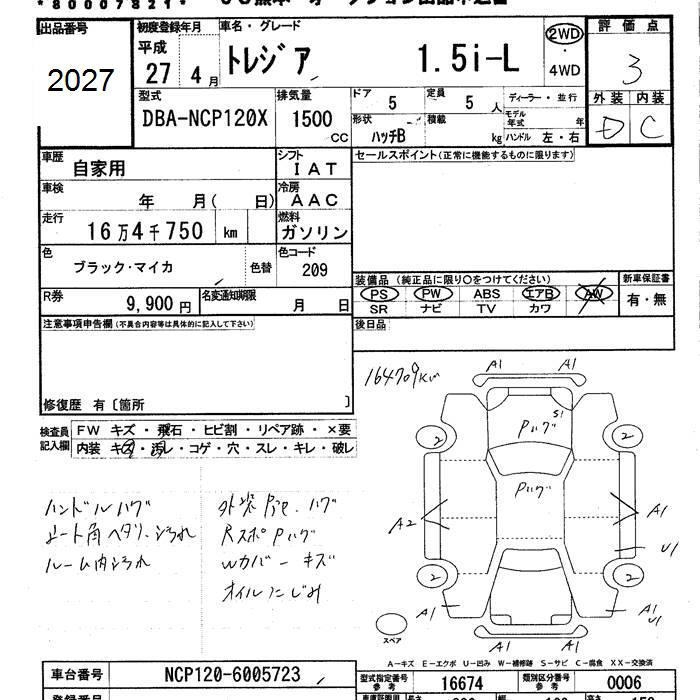 *80007821*
出品番号
2027
初度登録年月
平成
27年 4月
車名・グレード
トレジア 1.5i-L
2WD
・
4WD
評価点
3
外装 内装
D C
型式
DBA-NCP120X
排気量
1500
CC
ドア 5
定員 5 人
形状 ハッチB
積載 kg
ディーラー・並行
モデル年式 年
ハンドル 左・右
車歴 自家用
シフト IAT
車検 年 月( 日)
冷房 AAC
走行 16万4千750 km
燃料 ガソリン
色 ブラック・マイカ 色替
色コード 209
R券 9,900円
名変通知期限 月 日
セールスポイント(正常に機能するものに限ります)
装備品 (純正品に限り〇をつけてください)
PS PW ABS エアB AW
SR ナビ TV カワ
新車保証書
有・無
後日品
注意事項申告欄(不具合内容等は具体的に記入して下さい)
修復歴 有〔箇所 〕
検査員記入欄
FW キズ・飛石・ヒビ割・リペア跡・×要
内装 キズ・汚レ・コゲ・穴・スレ・キレ・破レ
164709km
A1 A1
S1
Pハゲ
Pハゲ
2 2
A2 A1
U1
2 2
A1 A1
U1
A1 A1
スペア
ハンドルハゲ
シート角ヘタリ、汚れ
ルーム内汚れ
外装 Pハゲ
RスポPハゲ
Wカバーキズ
オイルにじみ
A-キズ E-エクボ U-凹み W-補修跡 S-サビ C-腐食 XX-交換済
車台番号 NCP120-6005723
型式指定番号 参考 16674
類別区分番号 参考 0006